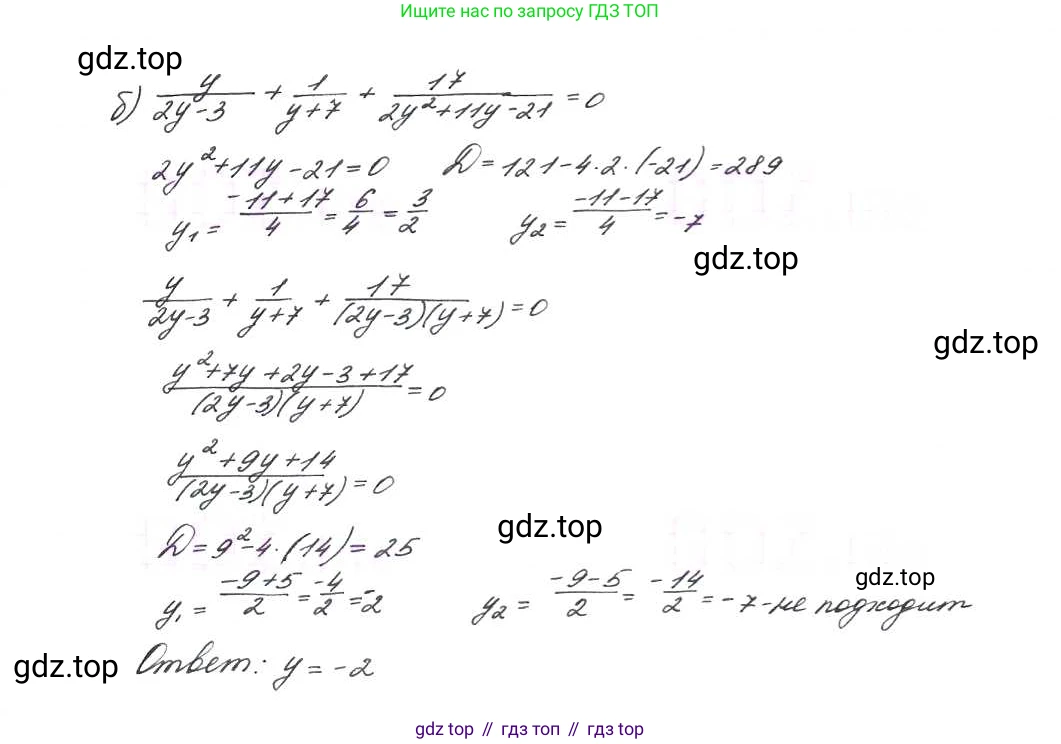 Ищите нас по запросу ГДЗ ТОП
gdz.top
б) y/(2y-3) + 1/(y+7) + 17/(2y²+11y-21) = 0
2y²+11y-21=0 D=121-4·2·(-21)=289
y₁ = (-11+17)/4 = 6/4 = 3/2 y₂ = (-11-17)/4 = -7
gdz.top
y/(2y-3) + 1/(y+7) + 17/((2y-3)(y+7)) = 0
gdz.top
(y²+7y+2y-3+17)/((2y-3)(y+7)) = 0
(y²+9y+14)/((2y-3)(y+7)) = 0
gdz.top
D=9²-4·(14)=25
gdz.top
y₁ = (-9+5)/2 = -4/2 = -2 y₂ = (-9-5)/2 = -14/2 = -7 - не подходит
gdz.top
Ответ: y = -2
gdz top // гдз топ // гдз top